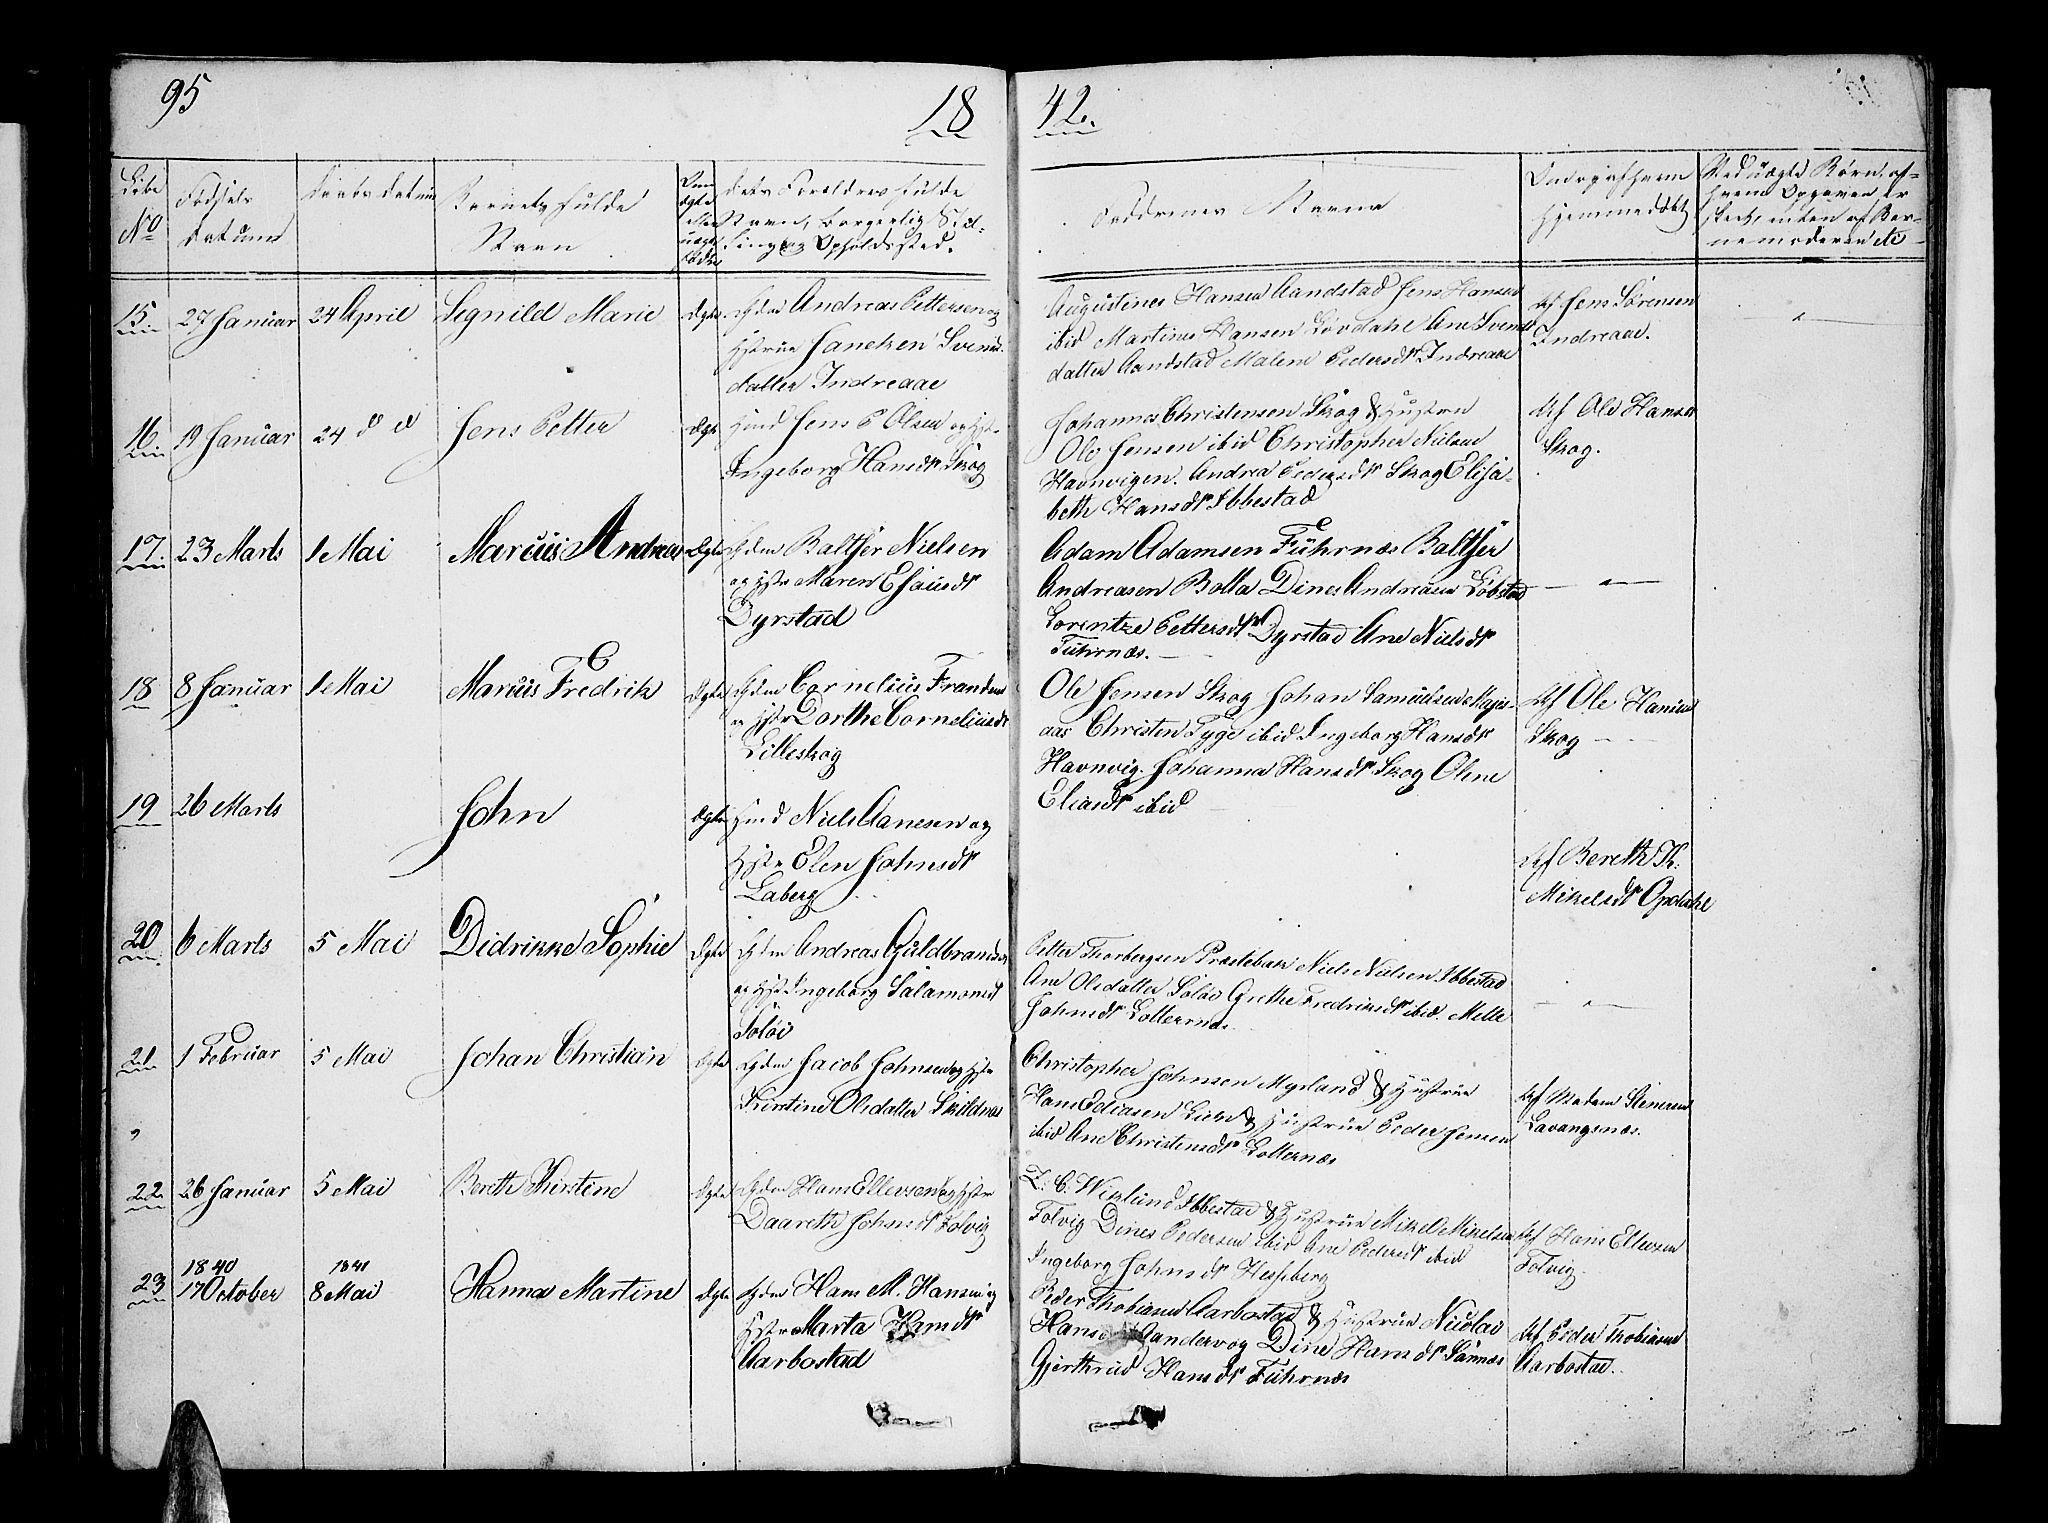 95
18
42.
Løbe
No
Fødsels
Datum
Daabs datum
Barnets fulde
Navn
Om
ægte
eller
uægte
fødte
dets Forældres fulde
Navn, borgerlig Stil-
ling og Opholdssted.
Faddernes Navne
Om og af hvem
hjemmedøbt
Ved uægte Børn, af
hvem Opgaven er
skeet, enten af Bar-
nemoderen etc
15
27 Januar
24 April
Signild Marie
Ægte
Gdm Andreas Pettersen og
Hstrue Janeken Svends-
datter Indreaae
Augustines Hansen Aandstad Jens Hansen
ibid Martinus Hansen Løvdahl Ane Svends
datter Aandstad Malene Pedersdtr Indreaae
Af Jens Sørensen
Indreaae.
16.
19 Januar
24 d d
Jens Petter
Ægte
Hmd Jens P Olsen og Hst.
Ingeborg Hansdtr Skog
Johannes Christensen Skog & Hustru
Ole Jensen ibid Christopher Nielsen
Havnvigen. Andrea Pedersdtr Skog Elisa-
beth Hansdtr Ibbestad
Af Ole Hansen
Skog.
17.
23 Marts
1 Mai
Marcus Andreas
Ægte
Gdm Baltser Nielsen
og Hstr Maren Esaiasdtr
Dyrstad
Adam Adamsen Fuhrnæs Baltser
Andreasen Rolla Dines Andreasen Løbstad
Lorentze Pettersdtr Dyrstad Ane Nielsdtr
Fuhrnæs.
18
8 Januar
1 Mai
Marcus Fredrik
Ægte
Gdm Cornelius Frandsen
og Hstr Dorthe Corneliusdtr
Lilleskog
Ole Jensen Skog Johan Samuelsen Majes-
aas Christen Tyge ibid Ingeborg Hansdtr
Havnvig. Johanna Hansdtr Skog Oline
Eliasdtr ibid
Af Ole Hansen
Skog
19
26 Marts
John
Ægte
Hmd Niels Aanesen og
Hstr Elen Johnsdtr
Laberg
Af Bereth K.
Mikelsdtr Opdahl
20
6 Marts
5 Mai
Didrikke Sophie
Ægte
Gdm Andreas Guldbrandsen
og Hstr Ingeborg Salamonsdtr
Soløi
Petter Thorbergsen Præstebak Niels Nielsen Ibbestad
Ane Olsdatter Soløi Grethe Fredriksdtr ibid. Melle
Johnsdtr Lotternæs
21
1 Februar
5 Mai
Johan Christian
Ægte
Gdm Jacob Johnsen og Hstr
Kirstine Olsdatter Skildnæs
Christopher Johnsen Myrland & Hustrue
Hans Ediasen & Hustrue Peder Jensen
ibid Ane Christensdtr Lotternæs
Af Madam Stenersen
Lavangsnæs.
22
26 Januar
5 Mai
Bereth Kirstine
Ægte
Gdm Hans Ellevsen og Hstr
Daareth Johnsdtr Folvig
Z: C. Wiklund Ibbestad & Hustrue Mikel Mikelsen
Folvig Dines Pedersen ibid Ane Pedersdtr ibid
Ingeborg Johnsdtr Hesseberg
Af Hans Ellevsen
Folvig.
23
1840
17 October
1841
8 Mai
Hanna Martine
Ægte
Gdm Hans M. Hansen og
Hstr Marta Hansdtr
Aarbostad
Peder Thobiasen Aarbostad & Hustrue Nicolai
Hansen Gandervog Dine Hansdtr Sannæs
Gjerthrud Hansdtr Fuhrnæs
Af Peder Thobiasen
Aarbostad.